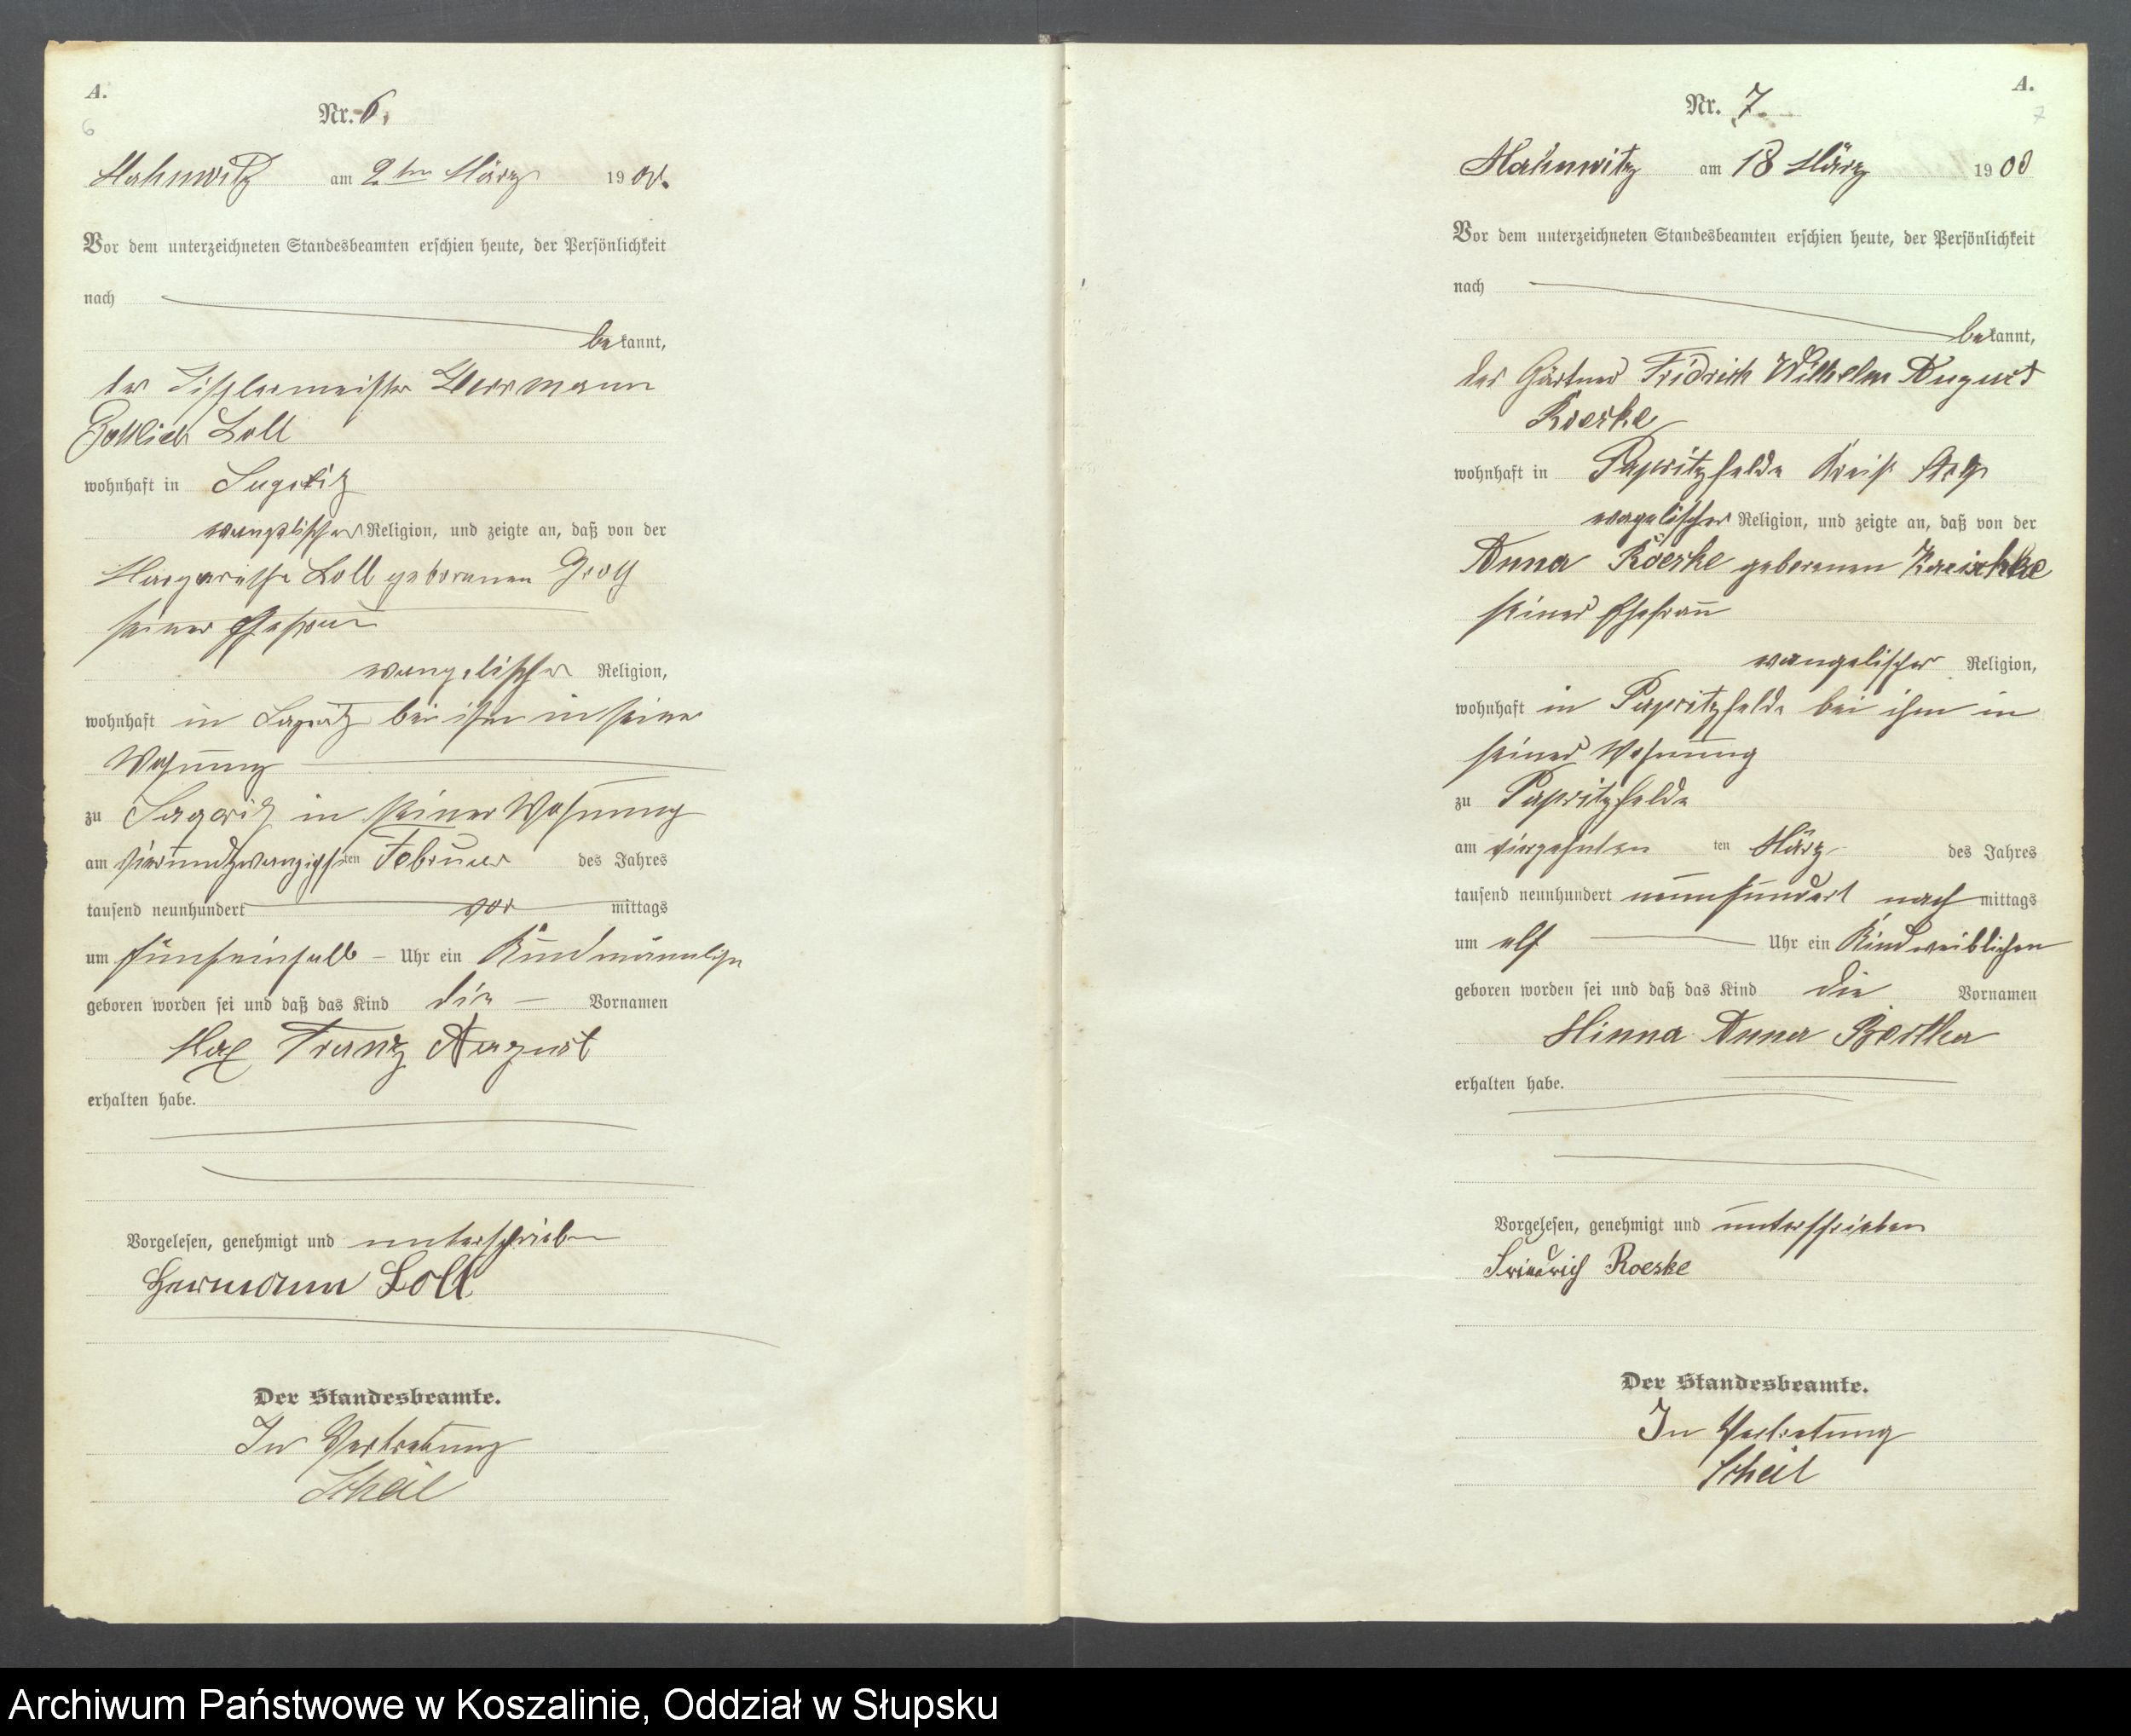 A.
6
Nr. 6.
Mahnwitz am 2ten März 1900.
Vor dem unterzeichneten Standesbeamten erschien heute, der Persönlichkeit
nach
bekannt,
der Tischlermeister Herrmann
Gottlieb Loll
wohnhaft in
evangelischer Religion, und zeigte an, daß von der
Margarethe Loll geborenen
seiner Ehefrau
evangelischer Religion,
wohnhaft in bei ihm in seiner
Wohnung
zu Sageritz in seiner Wohnung
am vierundzwanzigsten ten Februar des Jahres
tausend neunhundert vor mittags
um Uhr ein Kind
geboren worden sei und daß das Kind die Vornamen
Max Franz August
erhalten habe.
Vorgelesen, genehmigt und unterschrieben
Hermann Loll
Der Standesbeamte.
In Vertretung
Scheil
A.
7
Nr. 7.
Mahnwitz am 18 März 1900
Vor dem unterzeichneten Standesbeamten erschien heute, der Persönlichkeit
nach
bekannt,
der Gärtner Fridrich Wilhelm August
Roeske
wohnhaft in Papritzfelde Kreis Stolp
evagelischer Religion, und zeigte an, daß von der
Anna Roeske geborenen
seiner Ehefrau
evangelischer Religion,
wohnhaft in Papritzfelde bei ihm in
seiner Wohnung
zu Papritzfelde
am vierzehnten ten März des Jahres
tausend neunhundert neunhundert nach mittags
um elf Uhr ein Kind weiblichen
geboren worden sei und daß das Kind die Vornamen
Minna Anna Bertha
erhalten habe.
Vorgelesen, genehmigt und unterschrieben
Friedrich Roeske
Der Standesbeamte.
In Vertretung
Scheil
Archiwum Państwowe w Koszalinie, Oddział w Słupsku